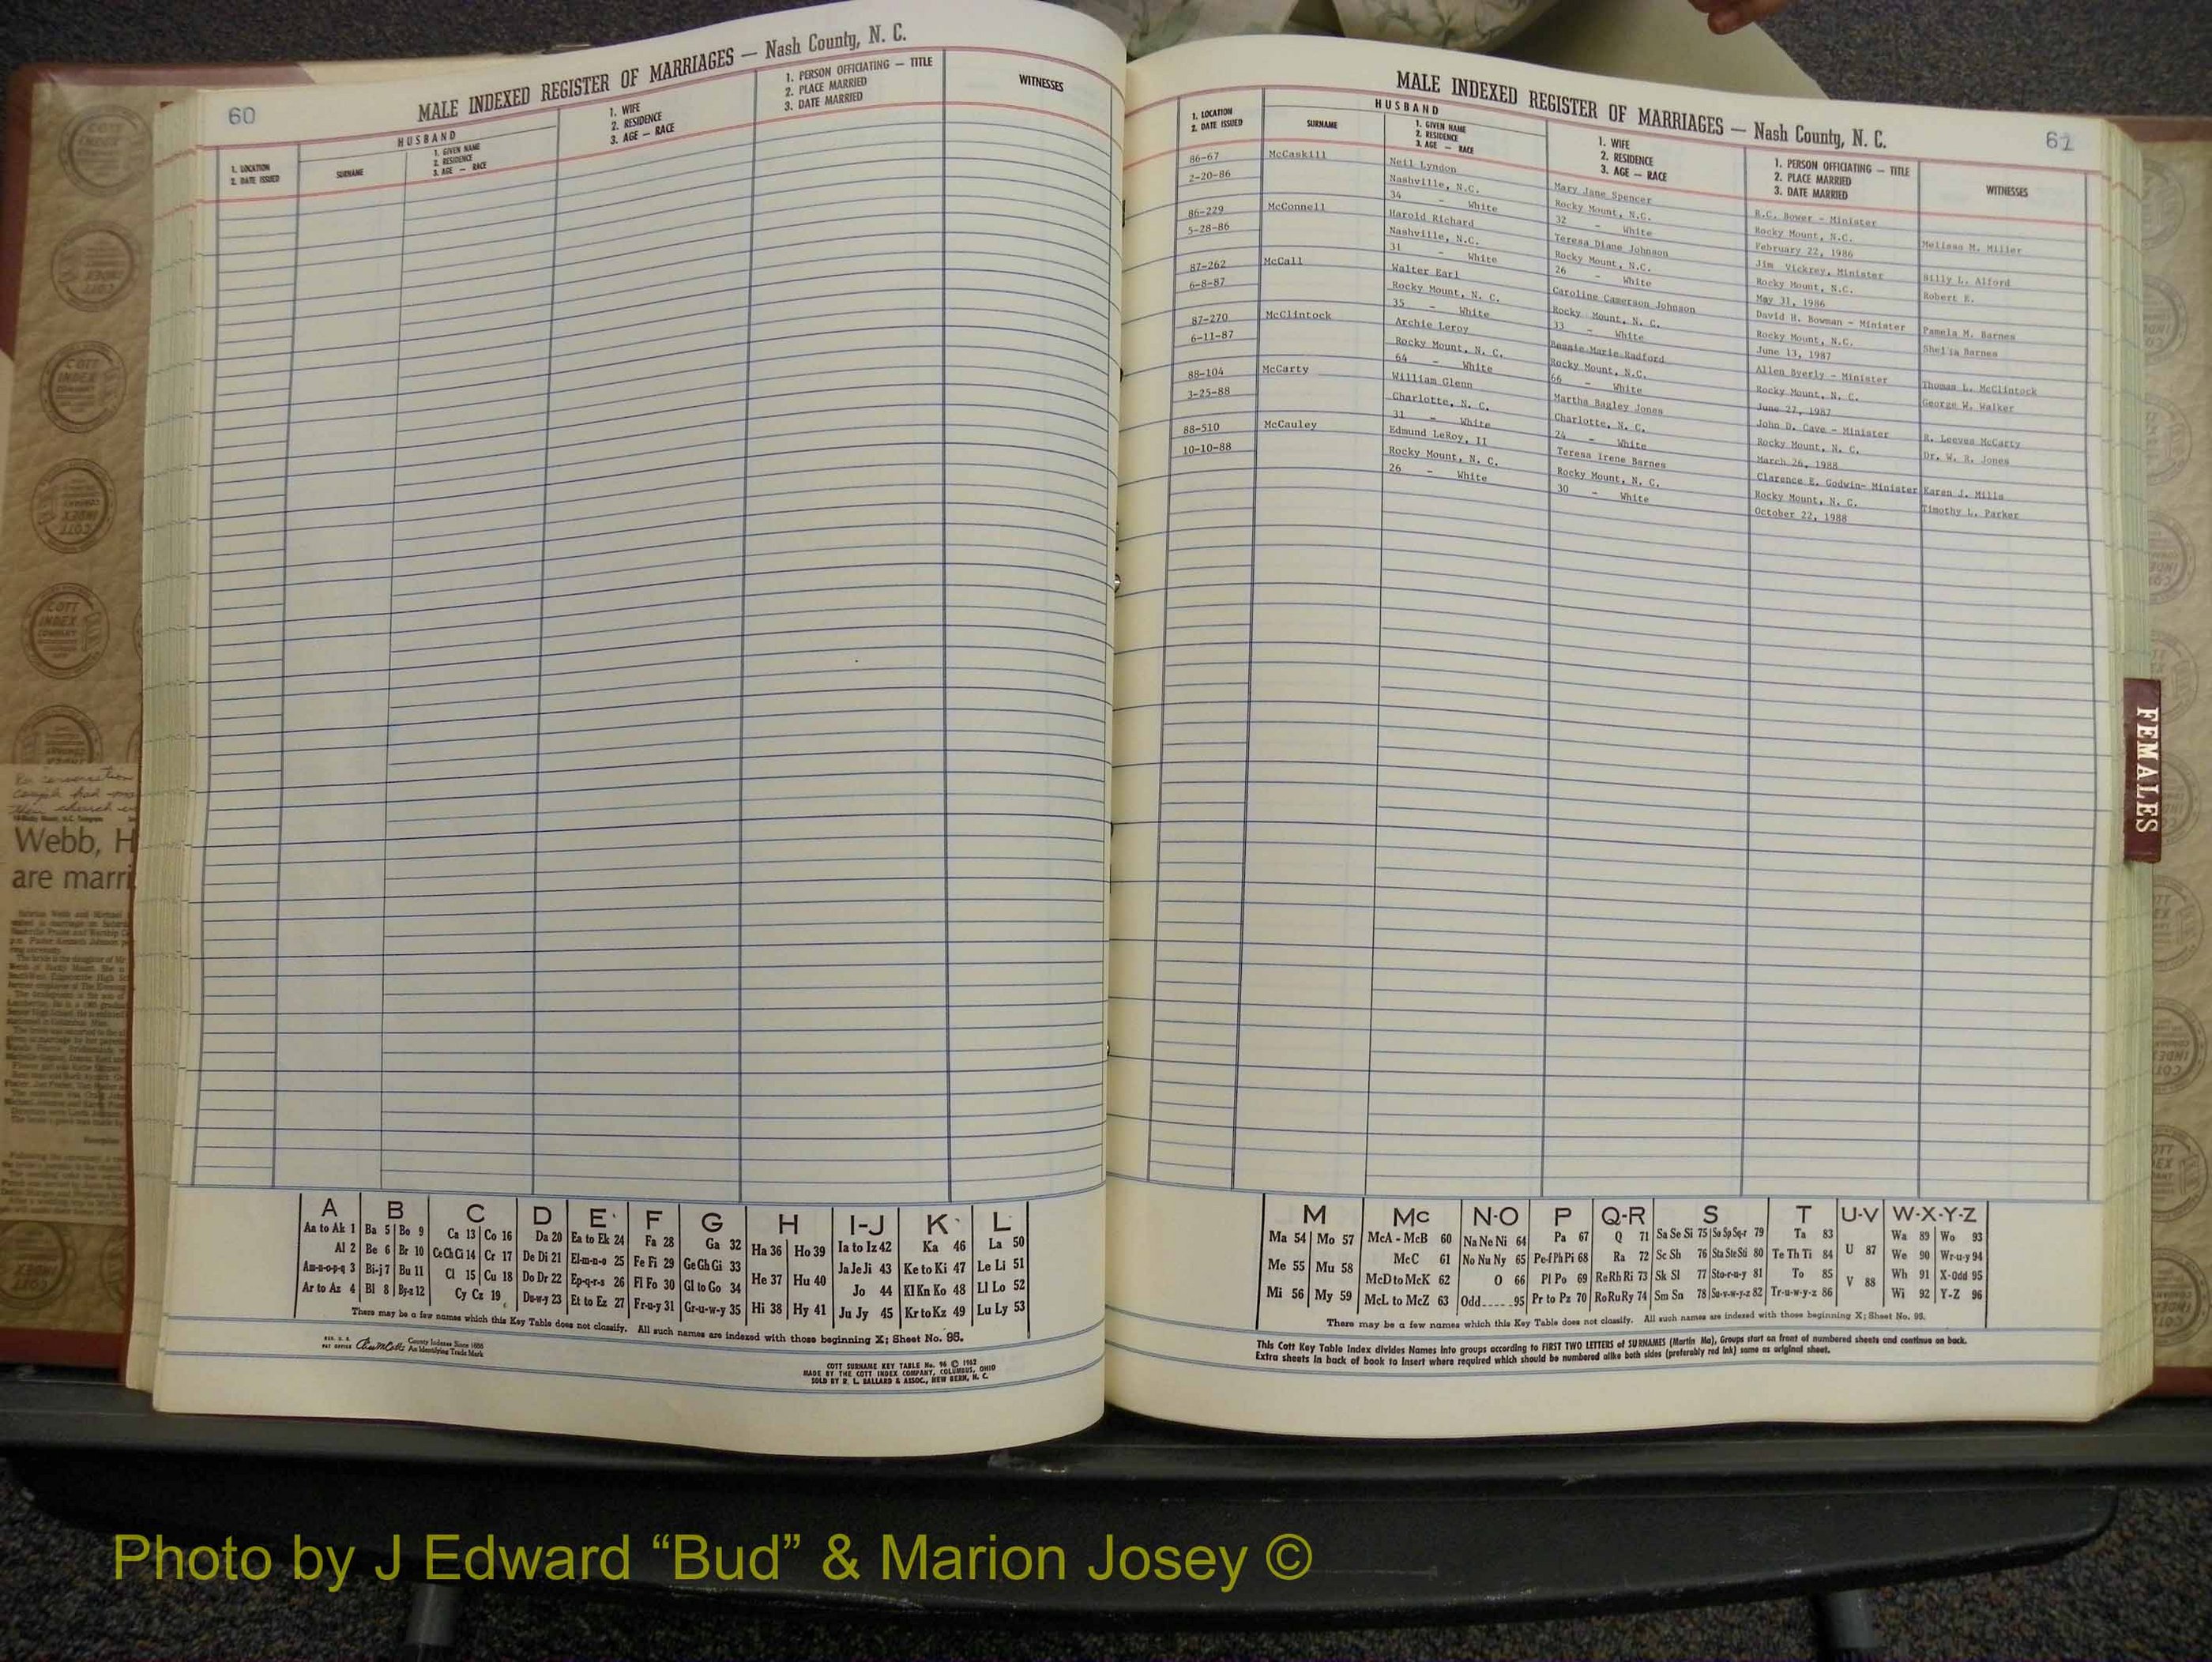 60
MALE INDEXED REGISTER OF MARRIAGES — Nash County, N. C.
HUSBAND
1. LOCATION
2. DATE ISSUED
SURNAME
1. GIVEN NAME
2. RESIDENCE
3. AGE — RACE
1. WIFE
2. RESIDENCE
3. AGE — RACE
1. PERSON OFFICIATING — TITLE
2. PLACE MARRIED
3. DATE MARRIED
WITNESSES
A B C D E F G H I-J K L
Aa to Ak 1 Ba 5 Bo 9 Ca 13 Co 16 Da 20 Ea to Ek 24 Fa 28 Ga 32 Ha 36 Ho 39 Ia to Iz 42 Ka 46 La 50
Al 2 Be 6 Br 10 Ce Ch Ci 14 Cr 17 De Di 21 El-m-n-o 25 Fe Fi 29 Ge Gh Gi 33 He 37 Hu 40 Ja Je Ji 43 Ke to Ki 47 Le Li 51
Am-n-o-p-q 3 Bi-j 7 Bu 11 Cl 15 Cu 18 Do Dr 22 Ep-q-r-s 26 Fl Fo 30 Gl to Go 34 Hi 38 Hy 41 Jo 44 Kl Kn Ko 48 Ll Lo 52
Ar to Az 4 Bl 8 By-z 12 Cy Cz 19 Du-w-y 23 Et to Ez 27 Fr-u-y 31 Gr-u-w-y 35 Ju Jy 45 Kr to Kz 49 Lu Ly 53
There may be a few names which this Key Table does not classify. All such names are indexed with those beginning X; Sheet No. 95.
County Indexes Since 1888
An Identifying Trade Mark
COTT SURNAME KEY TABLE No. 96 © 1962
MADE BY THE COTT INDEX COMPANY, COLUMBUS, OHIO
SOLD BY R. L. BALLARD & ASSOC., NEW BERN, N. C.
61
MALE INDEXED REGISTER OF MARRIAGES — Nash County, N. C.
HUSBAND
1. LOCATION
2. DATE ISSUED
SURNAME
1. GIVEN NAME
2. RESIDENCE
3. AGE — RACE
1. WIFE
2. RESIDENCE
3. AGE — RACE
1. PERSON OFFICIATING — TITLE
2. PLACE MARRIED
3. DATE MARRIED
WITNESSES
86-67 McCaskill Neil Lyndon Mary Jane Spencer R.C. Bower - Minister Melissa M. Miller
2-20-86 Nashville, N.C. Rocky Mount, N.C. Rocky Mount, N.C. Billy L. Alford
34 - White 32 - White February 22, 1986
86-229 McConnell Harold Richard Teresa Diane Johnson Jim Vickrey, Minister Robert E.
5-28-86 Nashville, N.C. Rocky Mount, N.C. Rocky Mount, N.C.
31 - White 26 - White May 31, 1986
87-262 McCall Walter Earl Caroline Camerson Johnson David H. Bowman - Minister Pamela M. Barnes
6-8-87 Rocky Mount, N. C. Rocky Mount, N. C. Rocky Mount, N.C. Shelia Barnes
35 - White 33 - White June 13, 1987
87-270 McClintock Archie Leroy Bessie Marie Radford Allen Byerly - Minister Thomas L. McClintock
6-11-87 Rocky Mount, N. C. Rocky Mount, N.C. Rocky Mount, N. C. George W. Walker
64 - White 66 - White June 27, 1987
88-104 McCarty William Glenn Martha Bagley Jones John D. Cave - Minister R. Leeves McCarty
3-25-88 Charlotte, N. C. Charlotte, N. C. Rocky Mount, N. C. Dr. W. R. Jones
31 - White 24 - White March 26, 1988
88-510 McCauley Edmund LeRoy, II Teresa Irene Barnes Clarence E. Godwin- Minister Karen J. Mills
10-10-88 Rocky Mount, N. C. Rocky Mount, N. C. Rocky Mount, N. C. Timothy L. Parker
26 - White 30 - White October 22, 1988
M Mc N-O P Q-R S T U-V W-X-Y-Z
Ma 54 Mo 57 McA - McB 60 Na Ne Ni 64 Pa 67 Q 71 Sa Se Si 75 So Sp Sq-r 79 Ta 83 U 87 Wa 89 Wo 93
Me 55 Mu 58 McC 61 No Nu Ny 65 Pe-f Ph Pi 68 Ra 72 Sc Sh 76 Sta Ste Sti 80 Te Th Ti 84 V 88 We 90 Wr-u-y 94
Mi 56 My 59 McD to McK 62 O 66 Pl Po 69 Re Rh Ri 73 Sk Sl 77 Sto-r-u-y 81 To 85 Wh 91 X-Odd 95
McL to McZ 63 Odd 95 Pr to Pz 70 Ro Ru Ry 74 Sm Sn 78 Su-v-w-y-z 82 Tr-u-w-y-z 86 Wi 92 Y-Z 96
There may be a few names which this Key Table does not classify. All such names are indexed with those beginning X; Sheet No. 95.
This Cott Key Table Index divides Names into groups according to FIRST TWO LETTERS of SURNAMES (Martin Ma), Groups start on front of numbered sheets and continue on back.
Extra sheets in back of book to insert where required which should be numbered alike both sides (preferably red ink) same as original sheet.
FEMALES
Webb, H
are marri
COTT
INDEX
COMPANY
Photo by J Edward “Bud” & Marion Josey ©